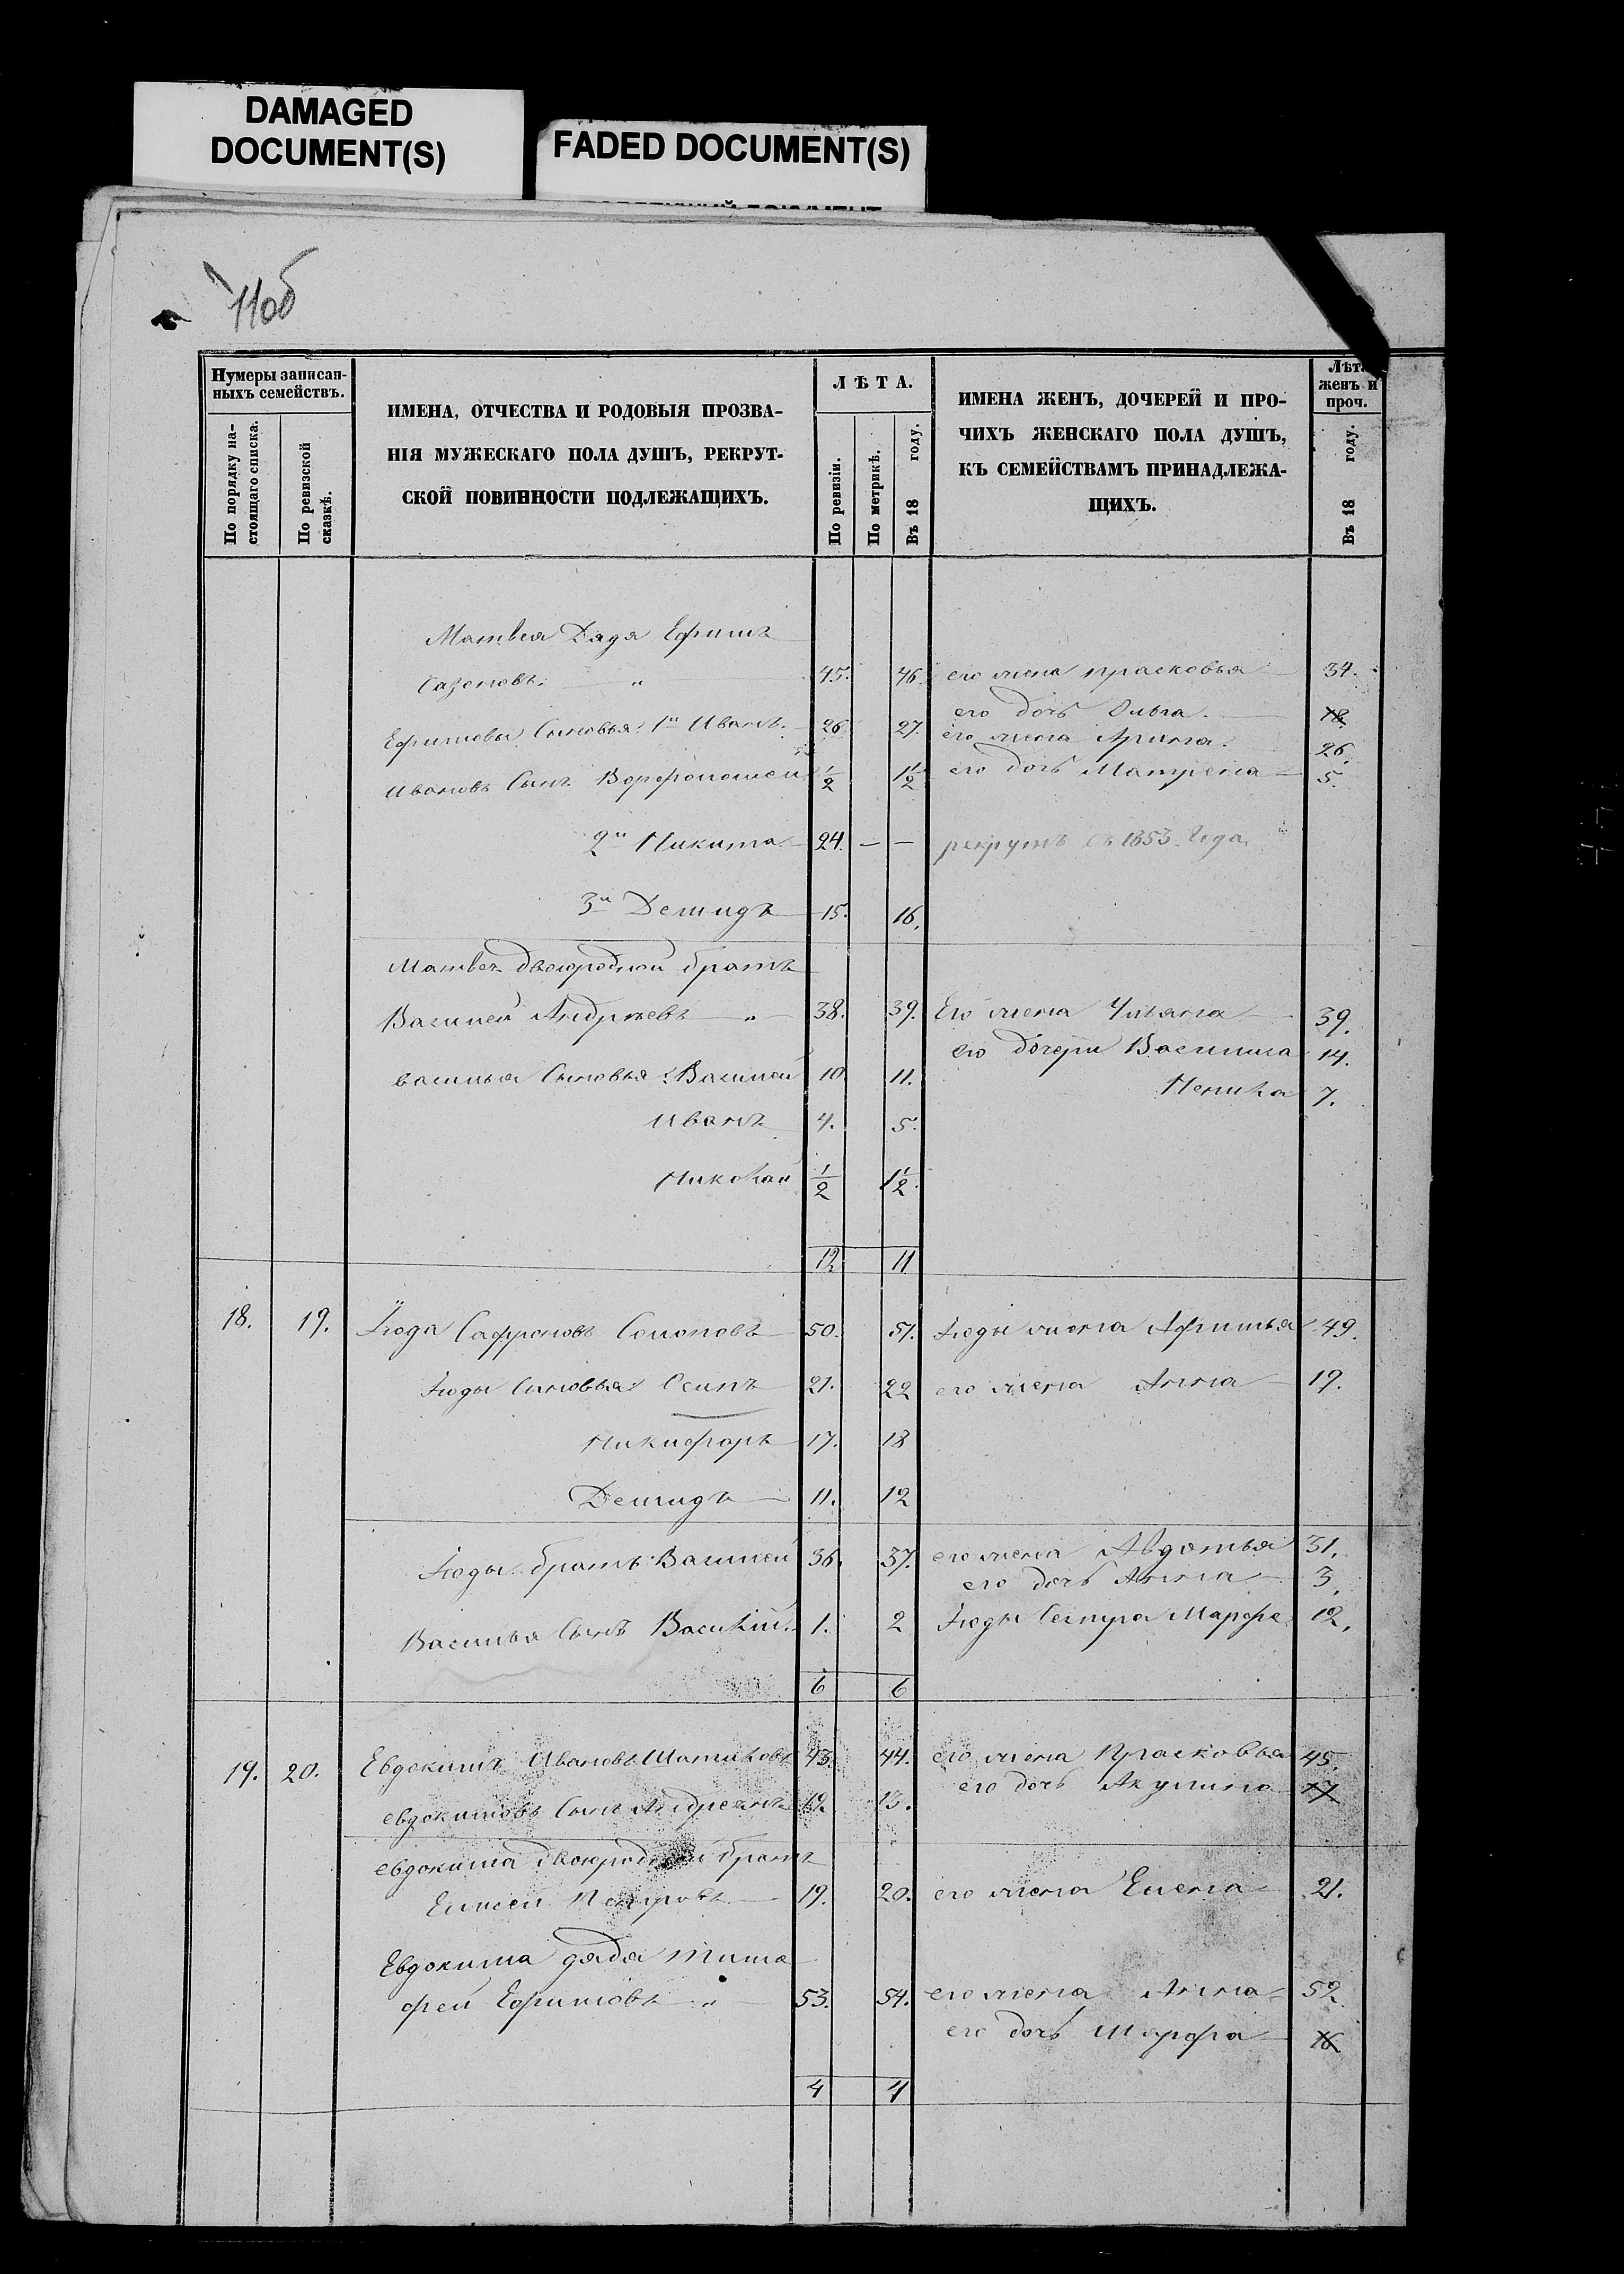 DAMAGED
DOCUMENT(S)
FADED DOCUMENT(S)
11об
Нумеры записан-
ныхъ семействъ.
По порядку на-
стоящаго списка.
По ревизской
сказкѣ.
ИМЕНА, ОТЧЕСТВА И РОДОВЫЯ ПРОЗВА-
НІЯ МУЖЕСКАГО ПОЛА ДУШЪ, РЕКРУТ-
СКОЙ ПОВИННОСТИ ПОДЛЕЖАЩИХЪ.
ЛѢТА.
По ревизіи.
По метрикѣ.
Въ 18 году.
ИМЕНА ЖЕНЪ, ДОЧЕРЕЙ И ПРО-
ЧИХЪ ЖЕНСКАГО ПОЛА ДУШЪ,
КЪ СЕМЕЙСТВАМЪ ПРИНАДЛЕЖА-
ЩИХЪ.
Лѣта
женъ и
проч.
Въ 18 году.
Матвея Дядя Ефимъ
Сазоновъ. — „ 45. 46. его жена прасковья 34.
его дочь Ольга. 18.
Ефимовы Сыновья: 1й Иванъ. 26. 27. его жена Арина. 26.
Ивановъ Сынъ 1/2 1 1/2 его дочь Матрена 5.
2й Никита 24. — — рекрутъ съ 1853 Года
3й Демидъ 15. 16.
Матвея двоюродной братъ
Василей Андреевъ — „ — 38. 39. Его жена Ульяна 39.
его дочери Василиса 14.
василья Сыновья: Василей 10 11.
7.
Иванъ 4. 5.
Николай 1/2 1 1/2.
12 11
18. 19. Іюда Сафроновъ 50. 51. Іюды жена Афимья 49.
Іюды Сыновья: Осипъ 21. 22 его жена Анна 19.
Никифоръ 17. 18
Демидъ 11. 12
Іюды братъ Василей 36. 37. его жена Авдотья 31.
его дочь Анна 3.
Василья Сынъ Василій. 1. 2 Іюды Сестра Марфа 12.
6 6
19. 20. Евдокимъ Ивановъ 43. 44. его жена Прасковья 45.
его дочь Акулина 17
евдокимовъ Сынъ Андреянъ 12. 13.
евдокима двоюродной братъ
Елисей Петровъ 19. 20. его жена Елена 21.
Евдокима дядя Тимо
фей Ефимовъ „ 53. 54. его жена Анна 52.
его дочь Марфа 16
4 4